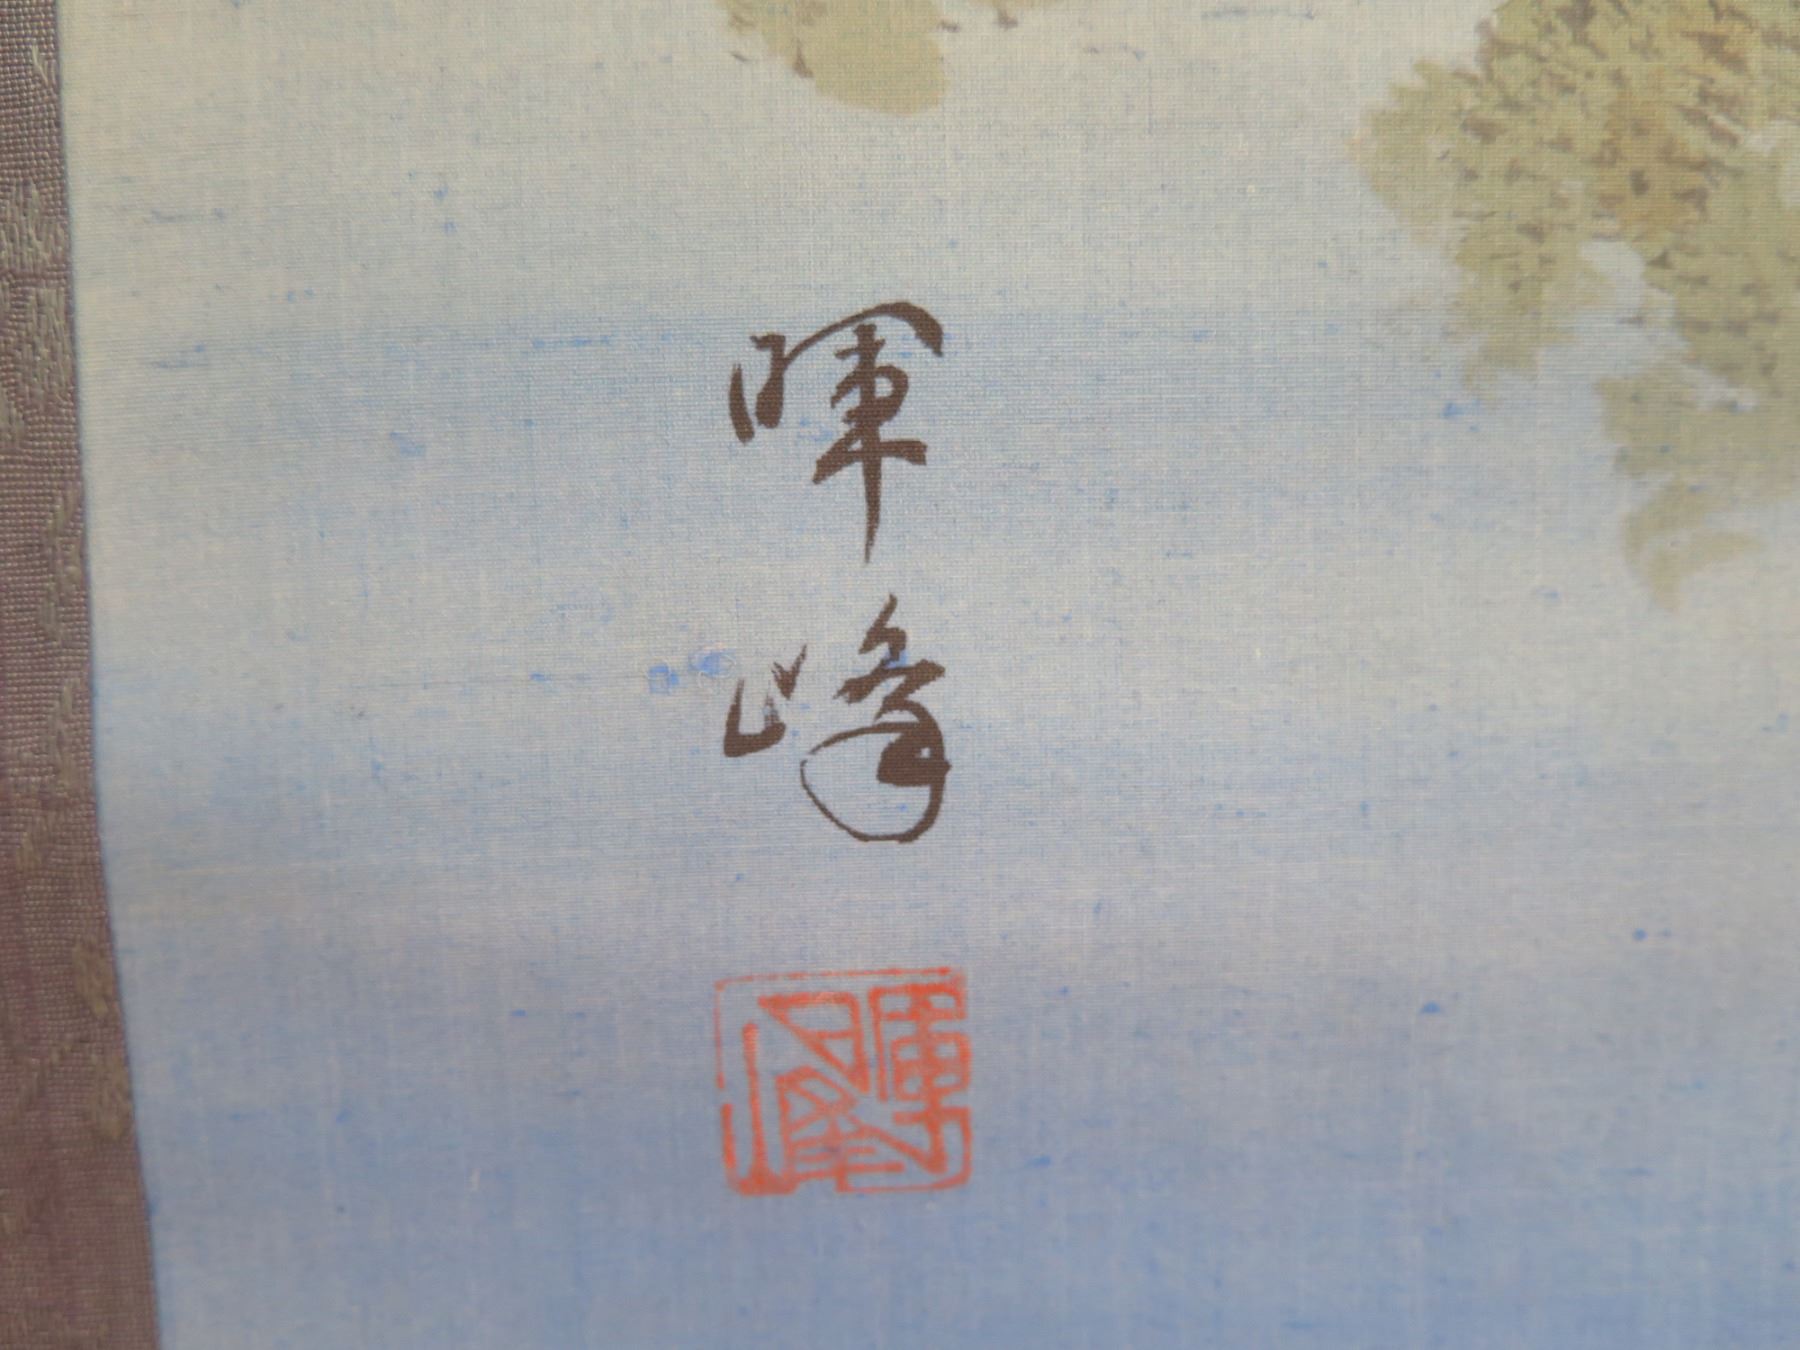 暉峰
暉峰